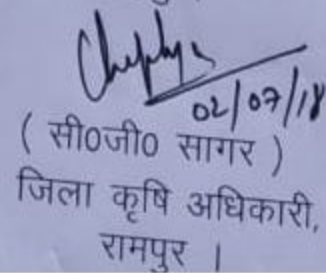 02/07/18
( सी0जी0 सागर )
जिला कृषि अधिकारी,
रामपुर ।